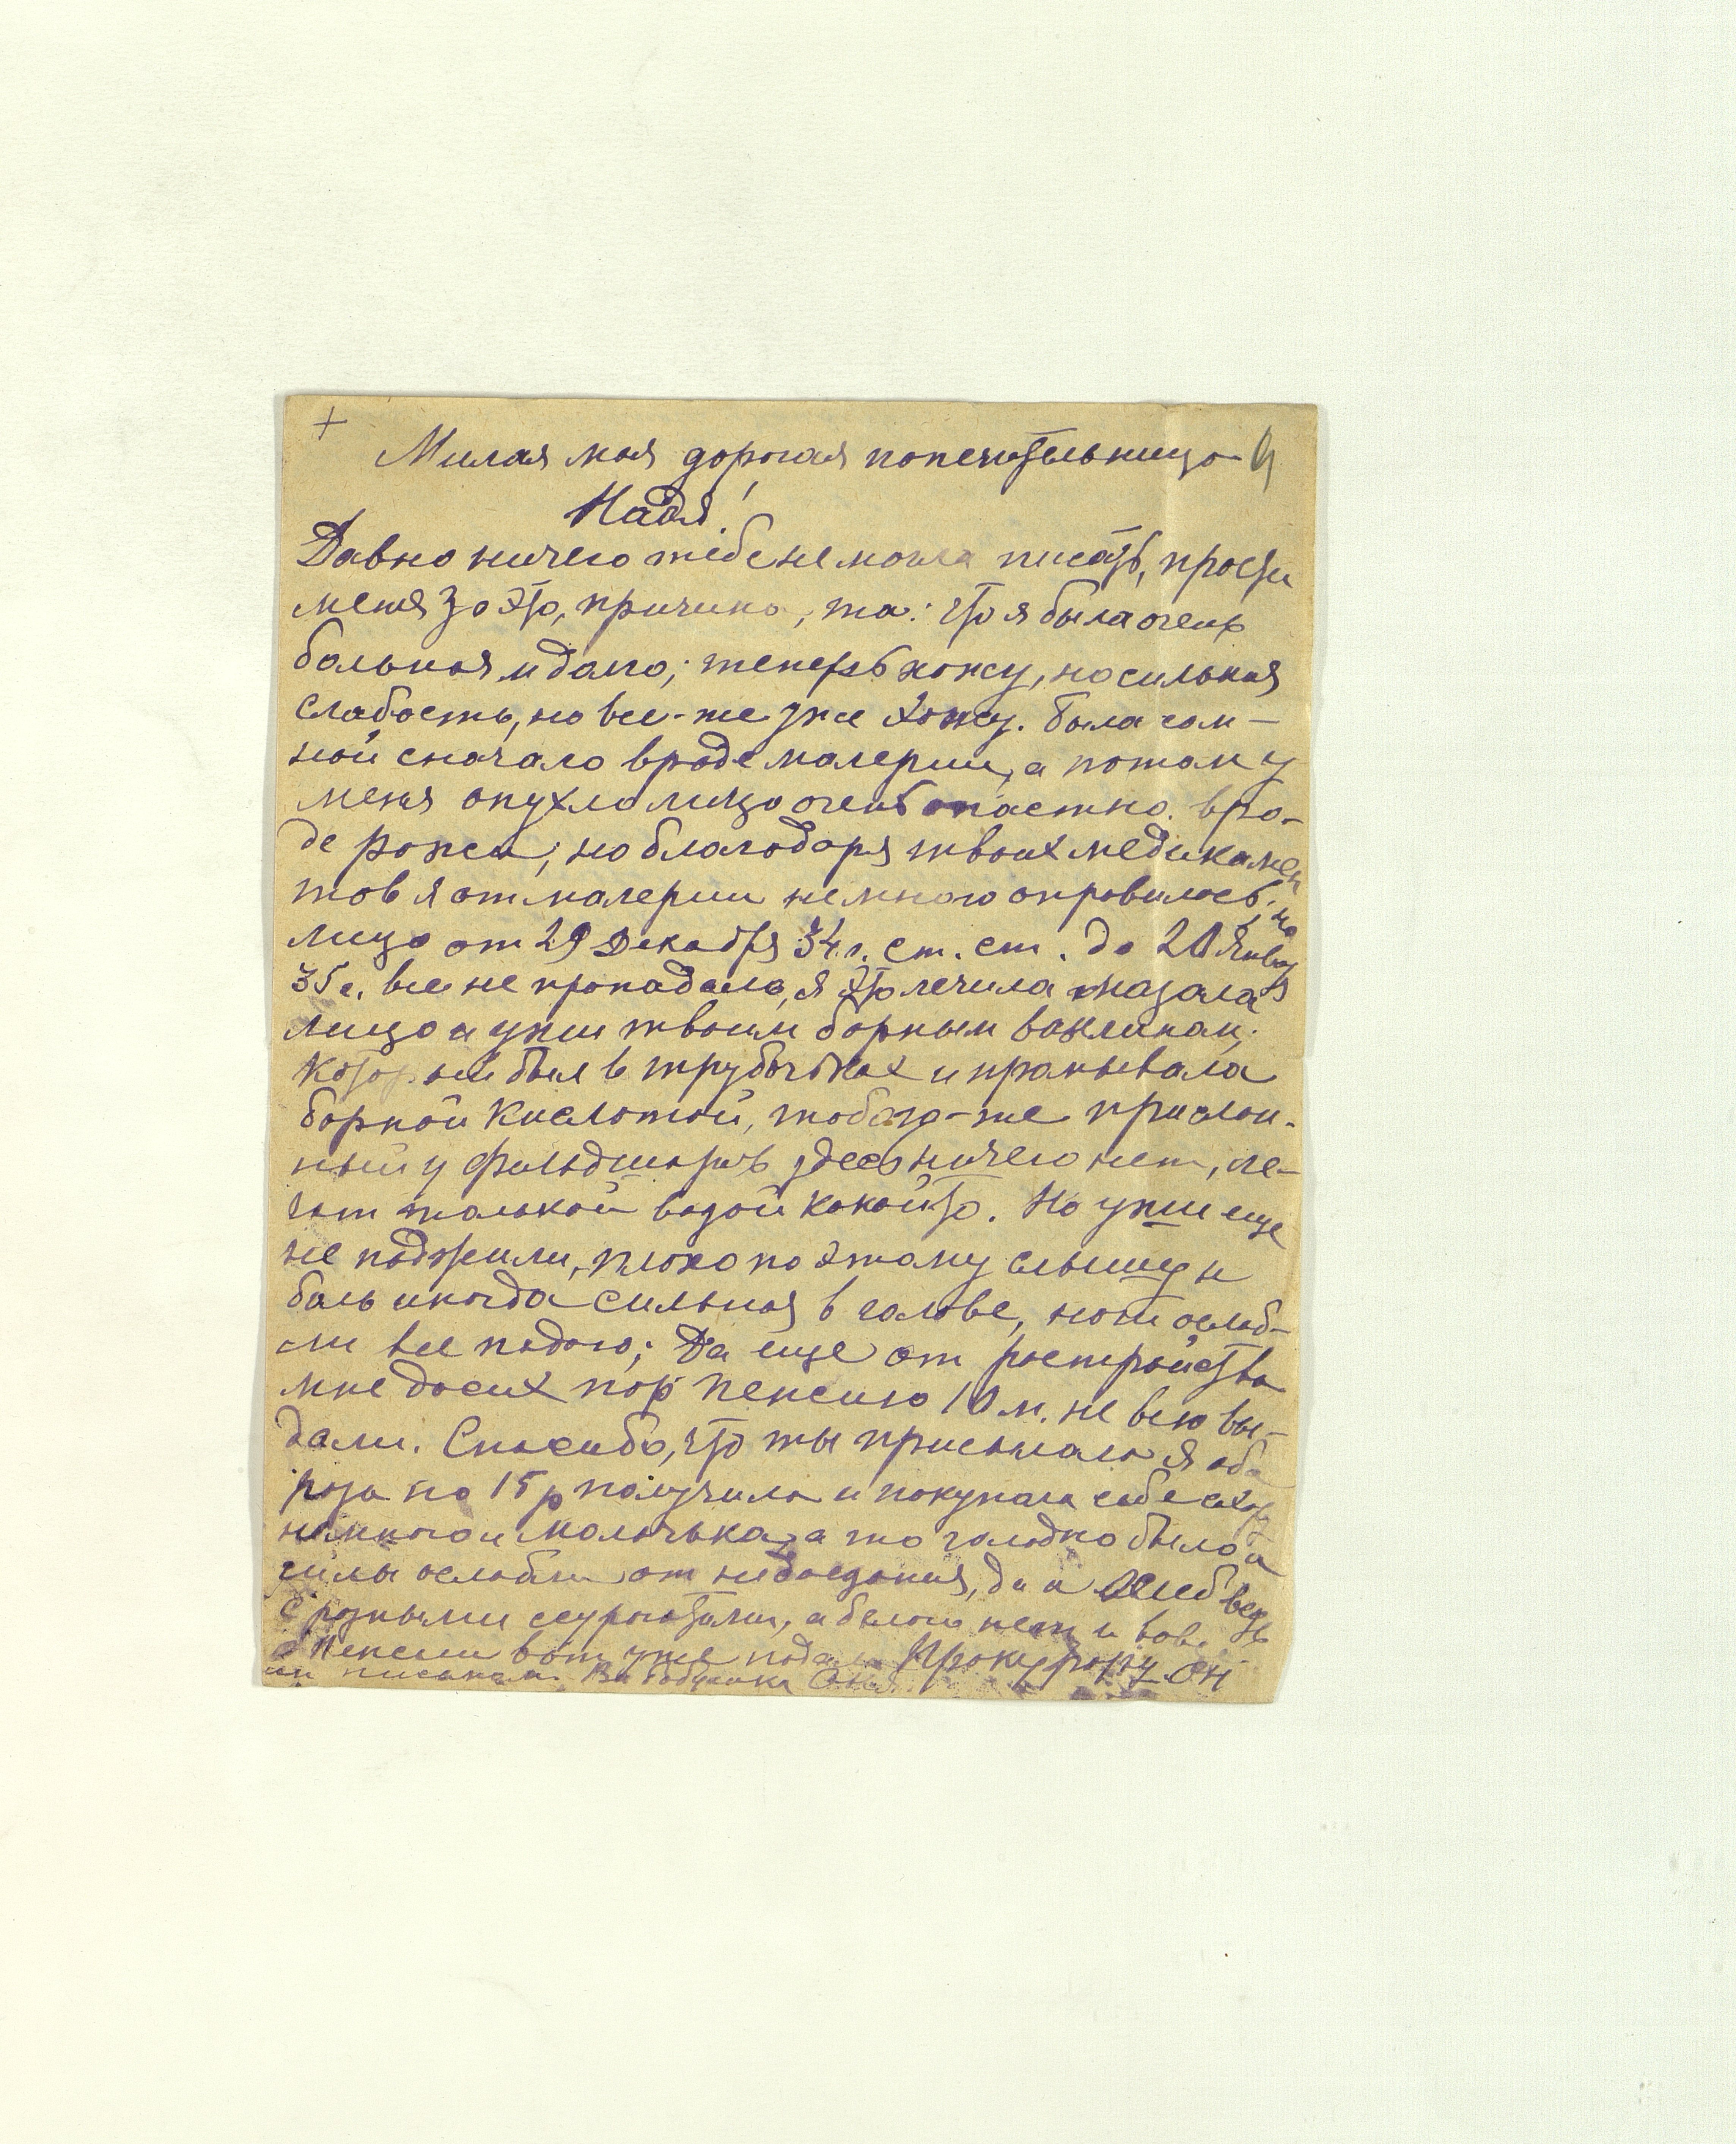 +
Милая моя дорогая попечительница
Надя!
Давно ничего тебе не могла писать, прости
меня за это, причина, та: что я была очень
больная и долго; теперь хожу, но сильная
слабость, но все-же уже хожу. Была со м-
ной сначало вроде малерии, а потом у
меня опухло лицо очень опастно. вро-
де рожи; но благодоря твоих медикамен
тов я от малерии немного оправилась, но
лицо от 29 Декабря 34 г. ст. ст. до 20 Январ
35 г. все не пропадала, я это лечила мазала
лицо и уши твоим борным вазлином,
который был в трубочках и промывала
борной кислотой, тобого-же прислон-
ный у фильдширов здесь ничего нет, ле-
чат только водой какойто. Но уши еще
не поджили, плохо поэтому слышу и
боль иногда сильная в голове, ноги ослаб-
ли все падаю; Да еще от ростройства
мне досих пор пенсию 10 м. не всю вы-
дали. Спасибо, что ты присылала я оба
раза по 15 р получила и покупала себе сахар
немного и малочька, а то голодно было и
силы ослабли от недоедания, да и хлеб ведь
с разными суррогатами, а белого нет и
о Пенсии вот уже подала Прокурору